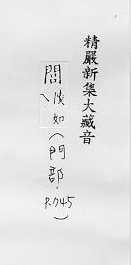 精嚴新集大藏音
閻 炎如(門部.
P.745)